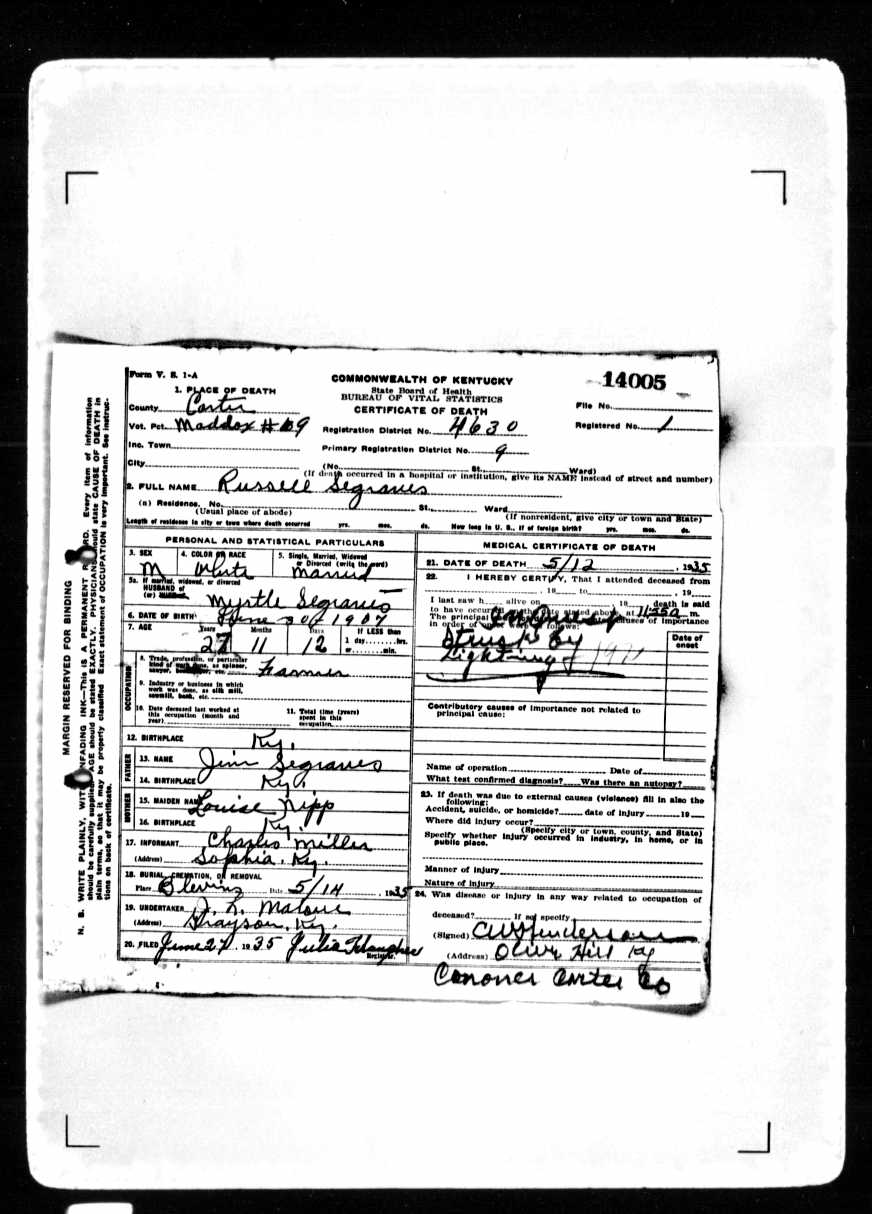 Form V. S. 1-A
COMMONWEALTH OF KENTUCKY
State Board of Health
BUREAU OF VITAL STATISTICS
CERTIFICATE OF DEATH
14005
File No.
Registered No. 1
1. PLACE OF DEATH
County Carter
Vot. Pct. Maddox # 9
Inc. Town
City
Registration District No. 4630
Primary Registration District No. 9
(No. St. Ward)
(If death occurred in a hospital or institution, give its NAME instead of street and number)
2. FULL NAME Russell Segraves
(a) Residence. No. St., Ward
(Usual place of abode) (If nonresident, give city or town and State)
Length of residence in city or town where death occurred yrs. mos. ds. How long in U. S., if of foreign birth? yrs. mos. ds.
PERSONAL AND STATISTICAL PARTICULARS
3. SEX
M
4. COLOR OR RACE
White
5. Single, Married, Widowed
or Divorced (write the word)
Married
5a. If married, widowed, or divorced
HUSBAND of
(or)
Myrtle Segraves
6. DATE OF BIRTH June 30 1907
7. AGE Years Months Days If LESS than
27 11 12 1 day hrs.
or min.
OCCUPATION
8. Trade, profession, or particular
kind of work done, as spinner,
sawyer, bookkeeper, etc. Farmer
9. Industry or business in which
work was done, as silk mill,
sawmill, bank, etc.
10. Date deceased last worked at
this occupation (month and
year)
11. Total time (years)
spent in this
occupation
12. BIRTHPLACE Ky.
FATHER
13. NAME Jim Segraves
14. BIRTHPLACE Ky.
MOTHER
15. MAIDEN NAME Louise Nipp
16. BIRTHPLACE Ky.
17. INFORMANT Charles Miller
(Address) Sophia, Ky.
18. BURIAL, CREMATION, OR REMOVAL
Place Blevins Date 5/14, 1935
19. UNDERTAKER J. L. Malone
(Address) Grayson, Ky.
20. FILED June 27, 1935 Julia
Registrar.
MEDICAL CERTIFICATE OF DEATH
21. DATE OF DEATH 5/12, 1935
22. I HEREBY CERTIFY, That I attended deceased from
, 19 to , 19
I last saw h alive on 19 death is said
to have occurred on the date stated above, at 11:50 a m.
The principal causes of importance
in order of onset were as follows:
Date of
onset
Struck by
Lightning
Contributory causes of importance not related to
principal cause:
Name of operation Date of
What test confirmed diagnosis? Was there an autopsy?
23. If death was due to external causes (violence) fill in also the
following:
Accident, suicide, or homicide? date of injury 19
Where did injury occur?
(Specify city or town, county, and State)
Specify whether injury occurred in industry, in home, or in
public place.
Manner of injury
Nature of injury
24. Was disease or injury in any way related to occupation of
deceased? If so, specify
(Signed) CW Henderson
(Address) Olive Hill Ky
Coroner Carter Co
MARGIN RESERVED FOR BINDING
N. B. WRITE PLAINLY, WITH UNFADING INK—This is a PERMANENT RECORD. Every item of information
should be carefully supplied. AGE should be stated EXACTLY. PHYSICIANS should state CAUSE OF DEATH in
plain terms, so that it may be properly classified. Exact statement of OCCUPATION is very important. See instruc-
tions on back of certificate.